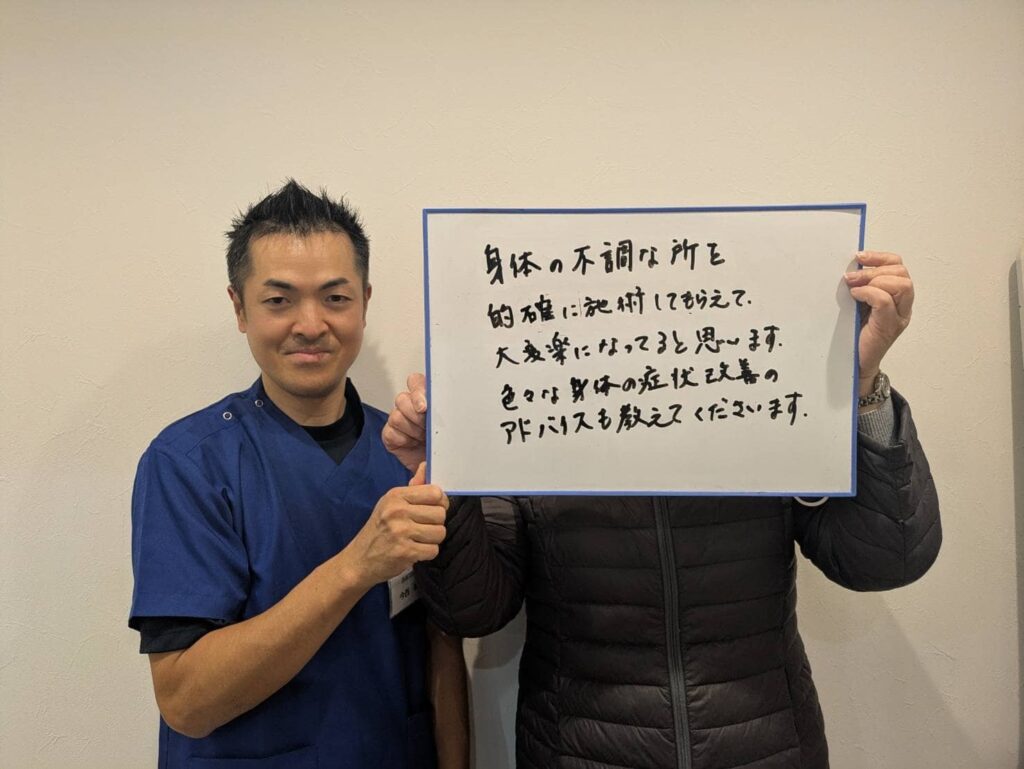 身体の不調な所を
的確に施術してもらえて、
大変楽になってると思います。
色々な身体の症状改善の
アドバイスも教えてくださいます。
今西